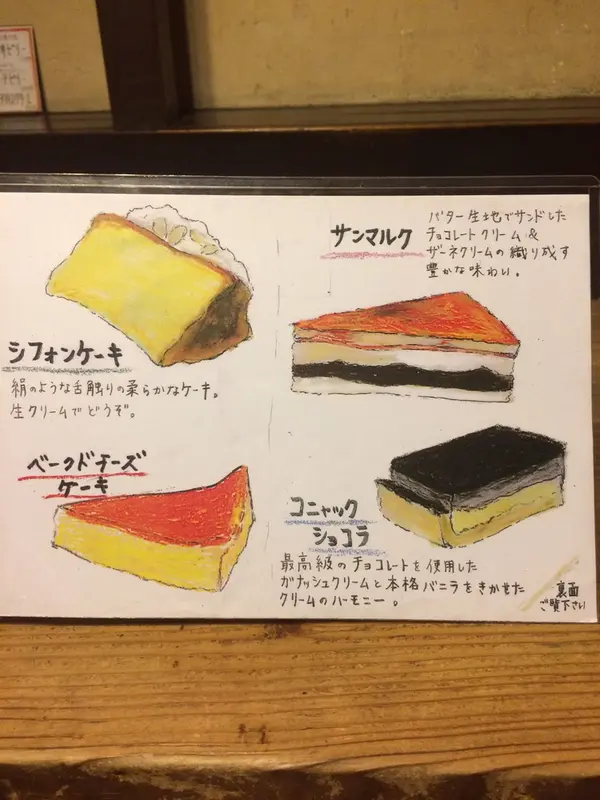 シフォンケーキ
絹のような舌触りの柔らかなケーキ。
生クリームでどうぞ。
ベークドチーズ
ケーキ
サンマルク
バター生地でサンドした
チョコレートクリーム &
ザーネクリームの織り成す
豊かな味わい。
コニャック
ショコラ
最高級のチョコレートを使用した
ガナッシュクリームと本格バニラをきかせた
クリームのハーモニー。
裏面
ご覧下さい